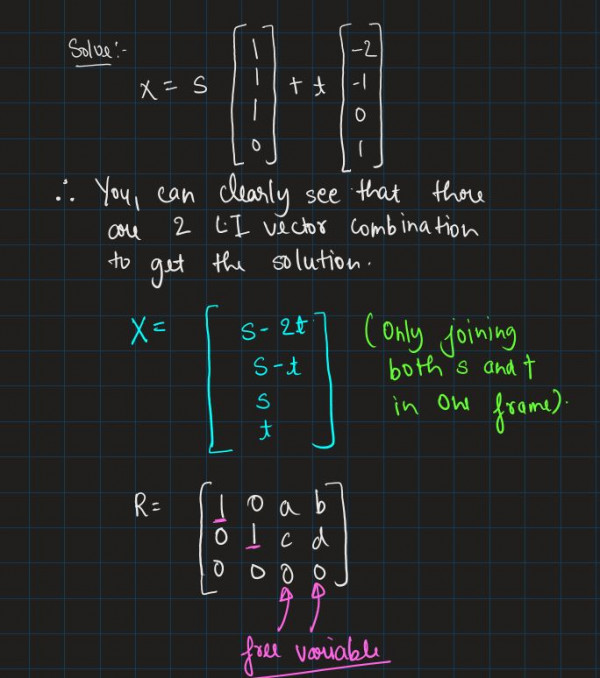 Solve:-
x = s [1 1 1 0] + t [-2 -1 0 1]
∴ You, can clearly see that there
are 2 LI vector combination
to get the solution.
X = [s - 2t
s - t
s
t]
(Only joining
both s and t
in one frame).
R = [1 0 a b
0 1 c d
0 0 0 0]
free variable